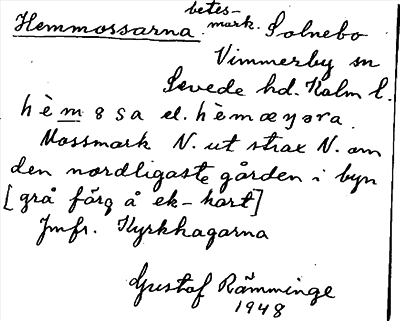 Hemmossarna. betes-mark. Solnebo
Vimmerby sn
Sevede hd. Kalm l.
hèm8sa el. hèmæŋara.
Mossmark N. ut strax N. om
den nordligaste gården i byn
[grå färg å ek-kart]
Jmfr. Kyrkhagarna
Gustaf Rämminge
1948